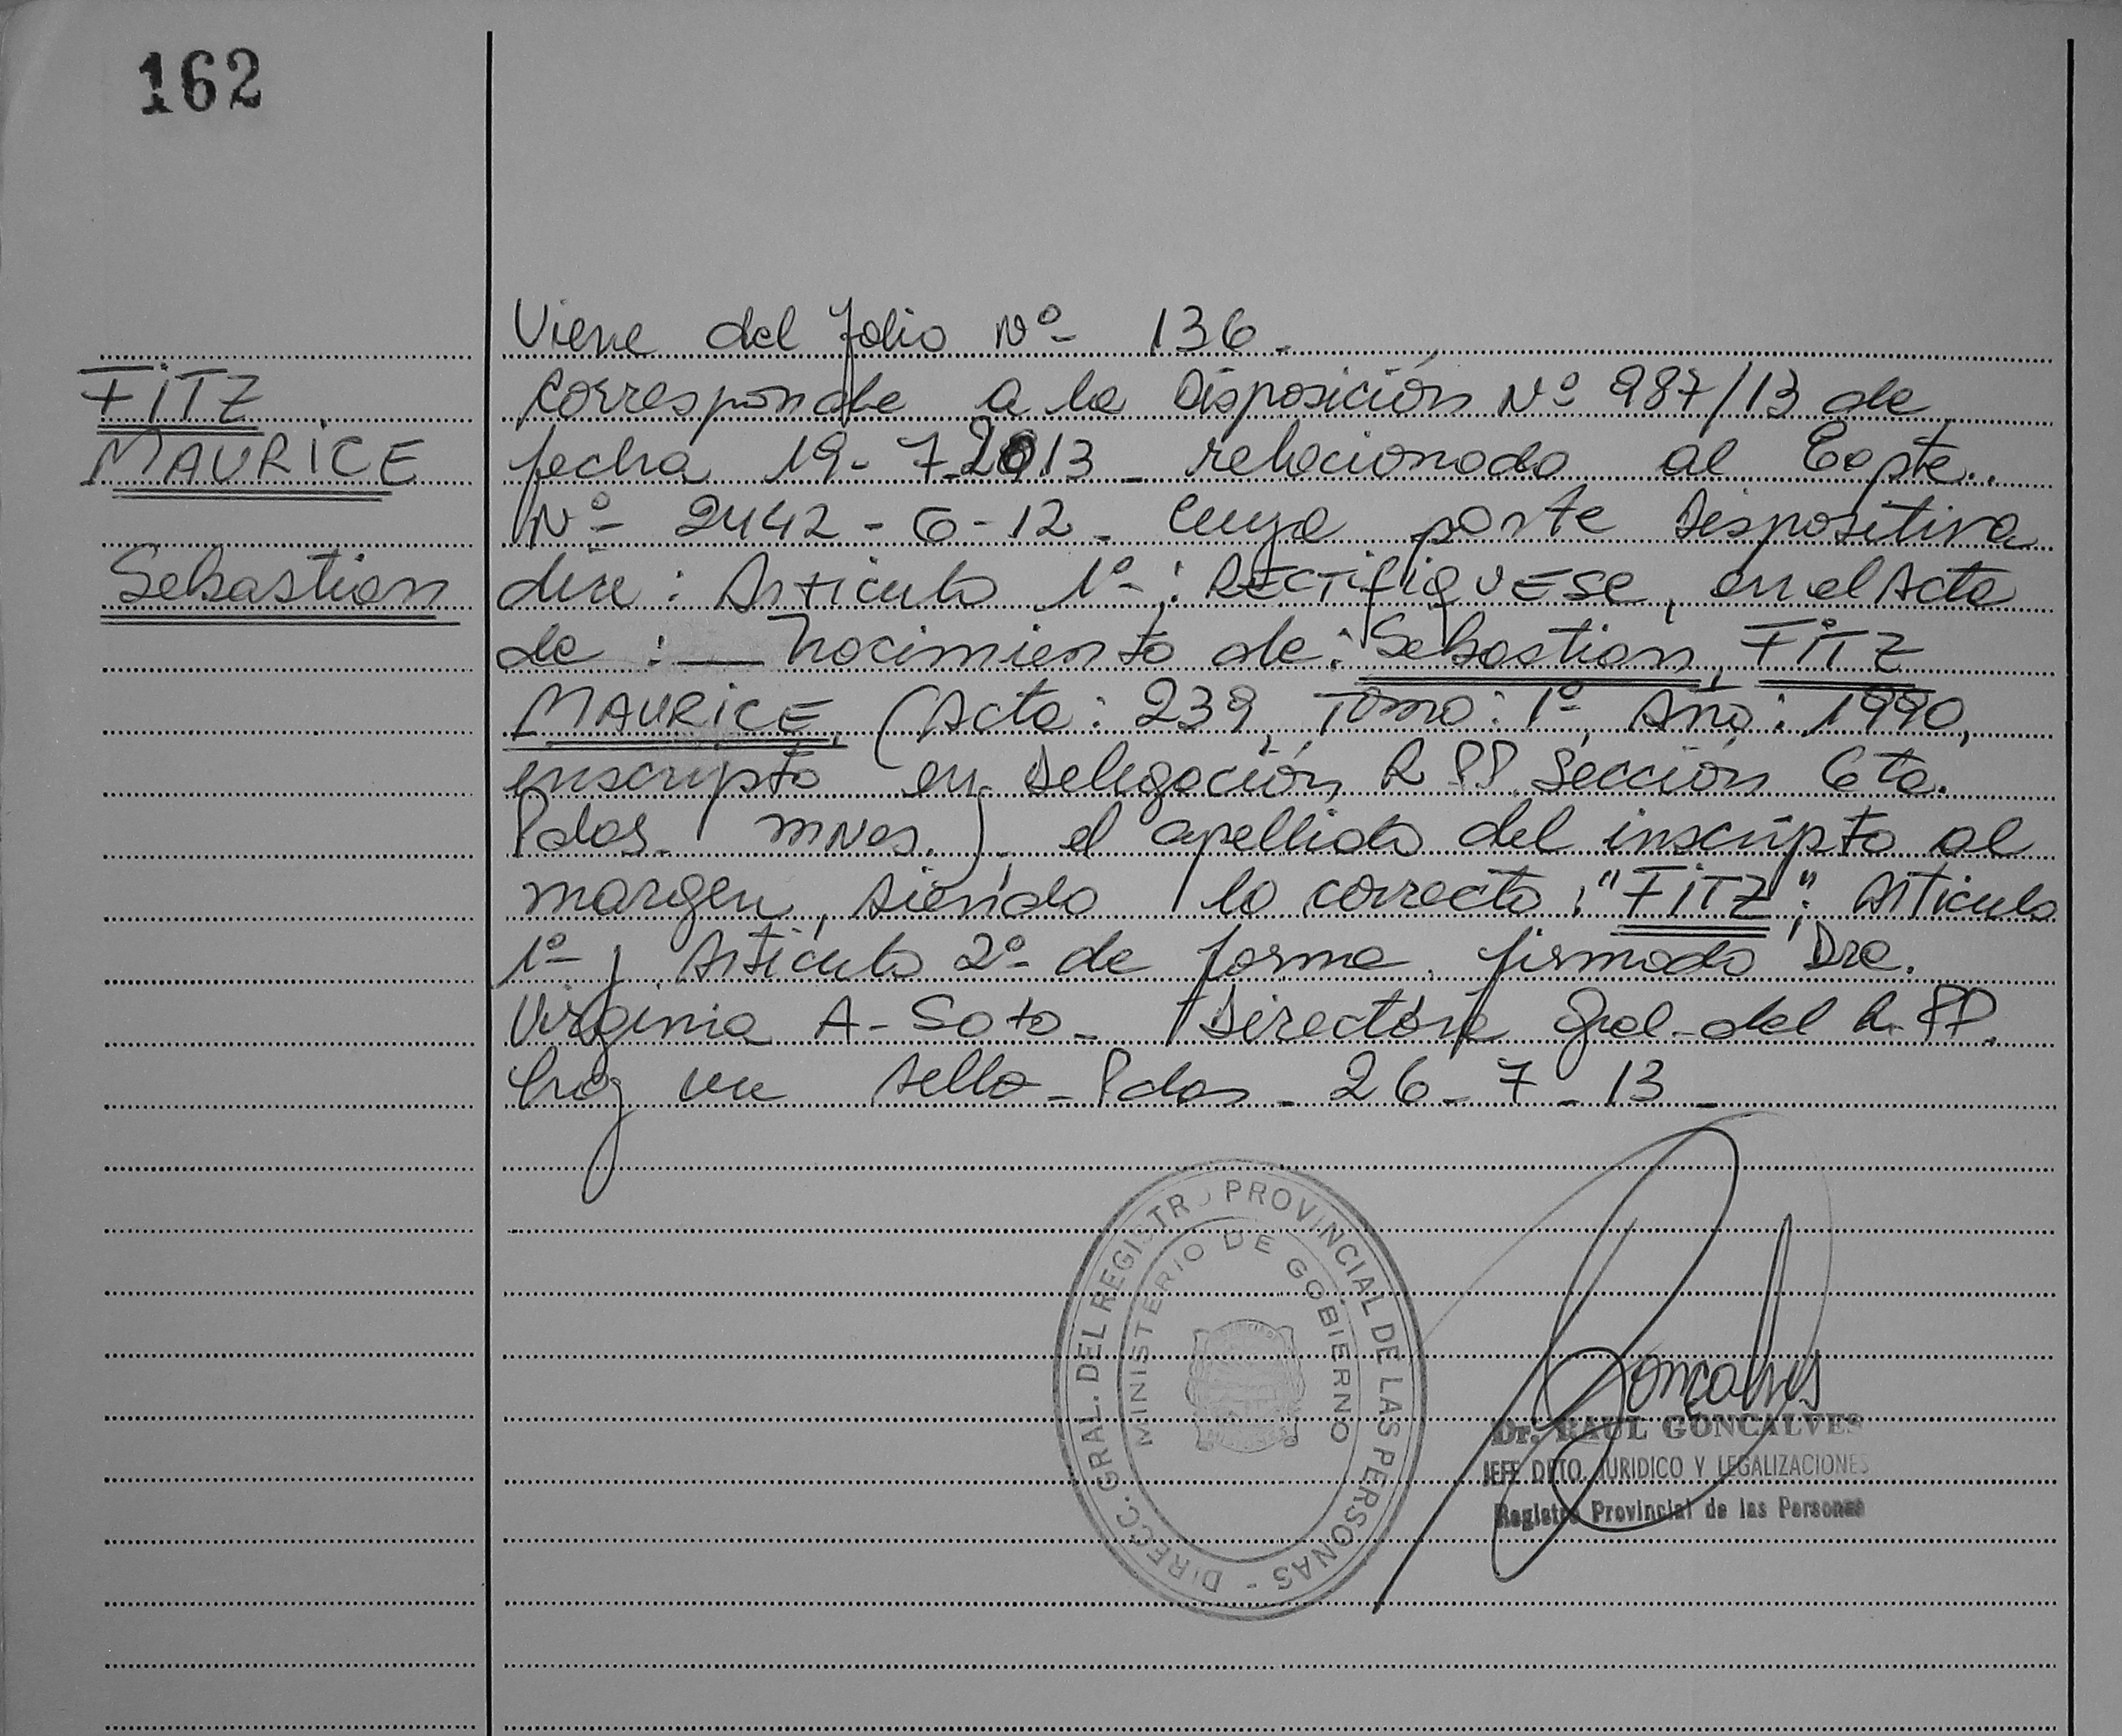 162
Viene del folio Nº- 136.-
FiTZ
MAURiCE
Sebastian
Corresponde a la Disposición Nº 987/13 de
fecha 19-7-2013 - relacionado al Expte..
Nº- 2442-G-12- cuya parte Dispositiva
dice: Articulo 1º-: RECTifiQUESE, en el Acta
de :— Nacimiento de: Sebastian, FiTZ
MAURiCE, (Acta: 239, Tomo: 1º, Año: 1990,
inscripto en Delegación R PP. Sección 6ta.
Pdas. mNes.), el apellido del inscripto al
margen, siendo lo correcto: "FiTZ"; Articulo
1º- y Articulo 2º- de forma. firmado Dra.
Virginia A- Soto- Directora Gral-del R.PP.
hay un sello- Pdas- 26-7-13-
DIRECC. GRAL. DEL REGISTRO PROVINCIAL DE LAS PERSONAS -
MINISTERIO DE GOBIERNO
Goncalves
Dr. RAUL GONCALVES
JEFE DPTO. JURIDICO Y LEGALIZACIONES
Registro Provincial de las Personas